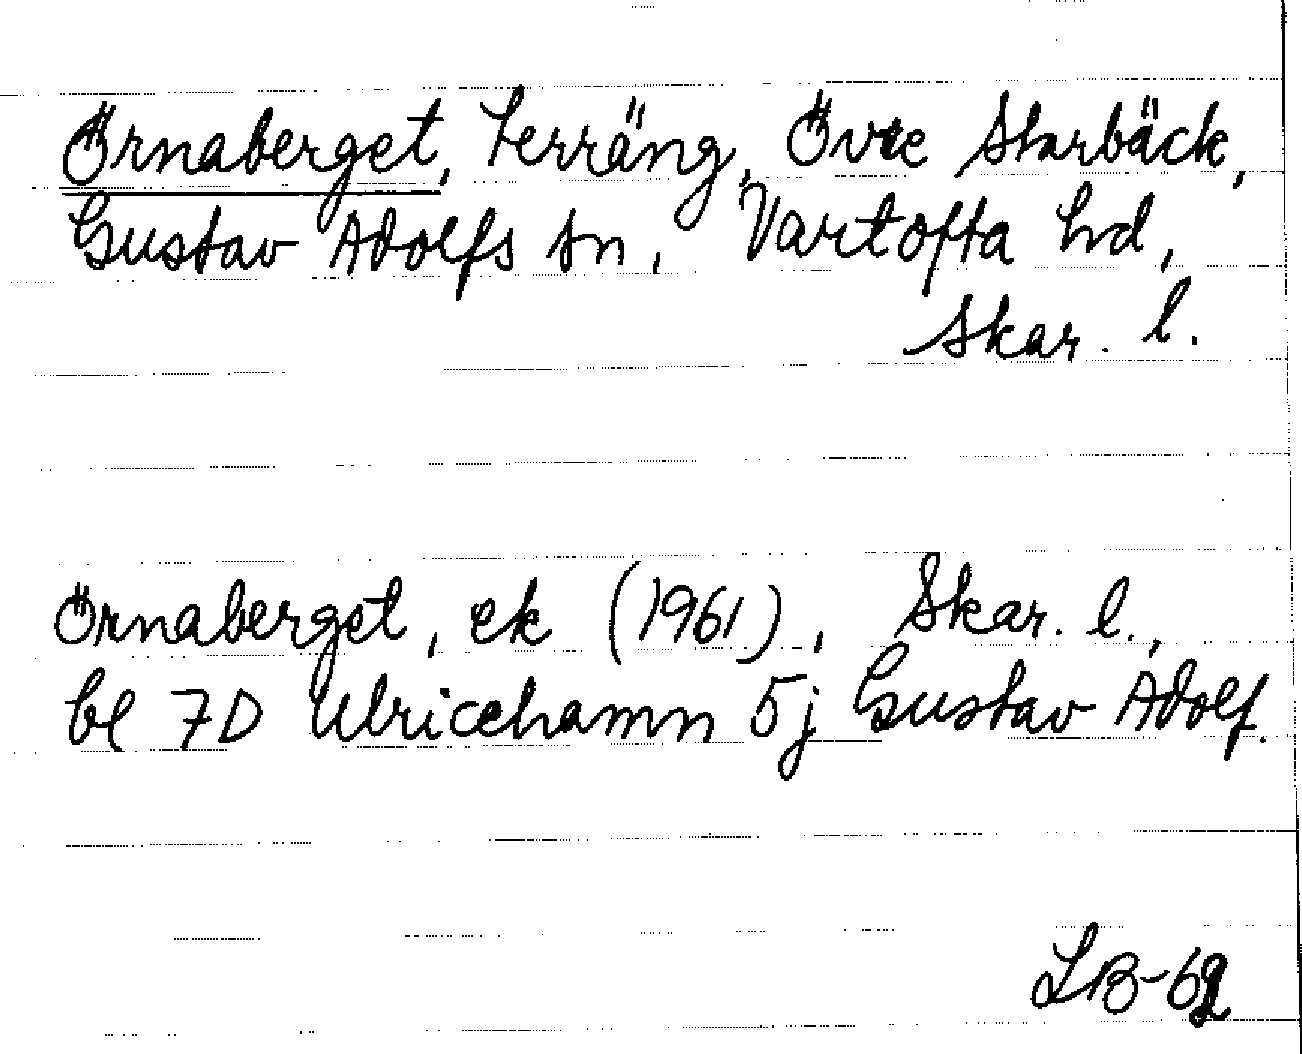 Örnaberget, terräng, Övre Skarbäck,
Gustav Adolfs sn, Vartofta hd,
Skar. l.
Örnaberget, ek (1961), Skar. l.,
bl 7D Ulricehamn 5j Gustav Adolf.